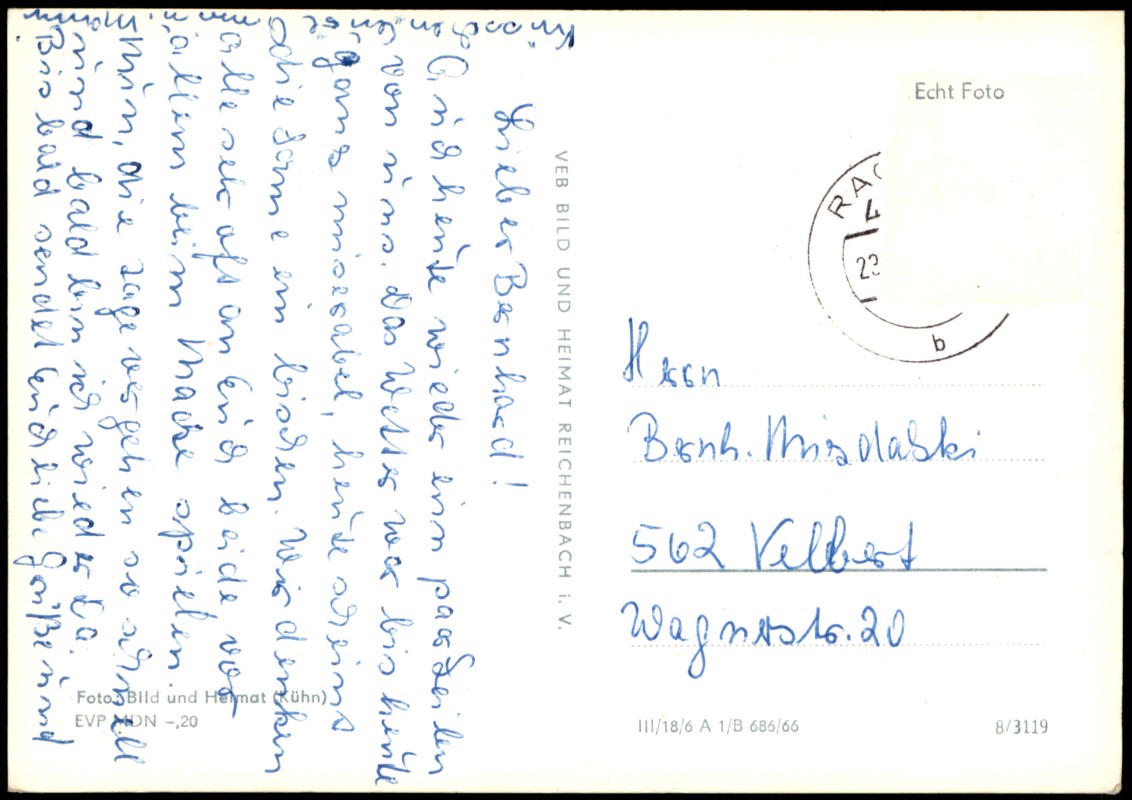 Lieber Bernhard!
Auch heute wieder ein paar Zeilen
von uns. Das Wetter war bis heute
ganz miserabel, heute scheint
die Sonne ein bischen. Wir denken
alle sehr oft an Euch beide vor
allem beim spielen.
Nun, die Tage vergehen so schnell
und bald bin ich wieder da.
Bis bald sendet Euch liebe Grüße und
Küsschen
VEB BILD UND HEIMAT REICHENBACH i. V.
Foto: Bild und Heimat (Kühn)
EVP MDN –,20
Echt Foto
23
b
Herrn
Bernh. Misdalski
562 Velbert
Wagnerstr. 20
III/18/6 A 1/B 686/66
8/3119